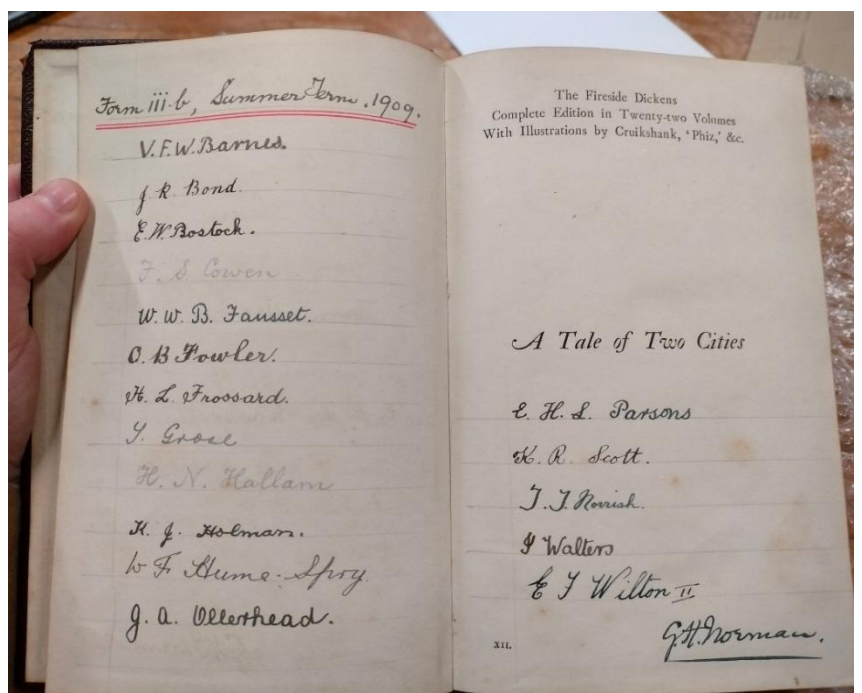 Form iii-b, Summer Term. 1909.
V. F. W. Barnes.
J. R. Bond.
E. W. Bostock.
F. S. Cowen
W. W. B. Fausset.
O. B Fowler.
H. L. Frossard.
Grose
H. N. Hallam
K. J. Holman.
W F Hume-Spry
J. A. Ollerhead.
The Fireside Dickens
Complete Edition in Twenty-two Volumes
With Illustrations by Cruikshank, 'Phiz,' &c.
A Tale of Two Cities
E. H. L. Parsons
K. R. Scott.
Norrish.
Walters
Wilton II
G. H. Norman.
XII.